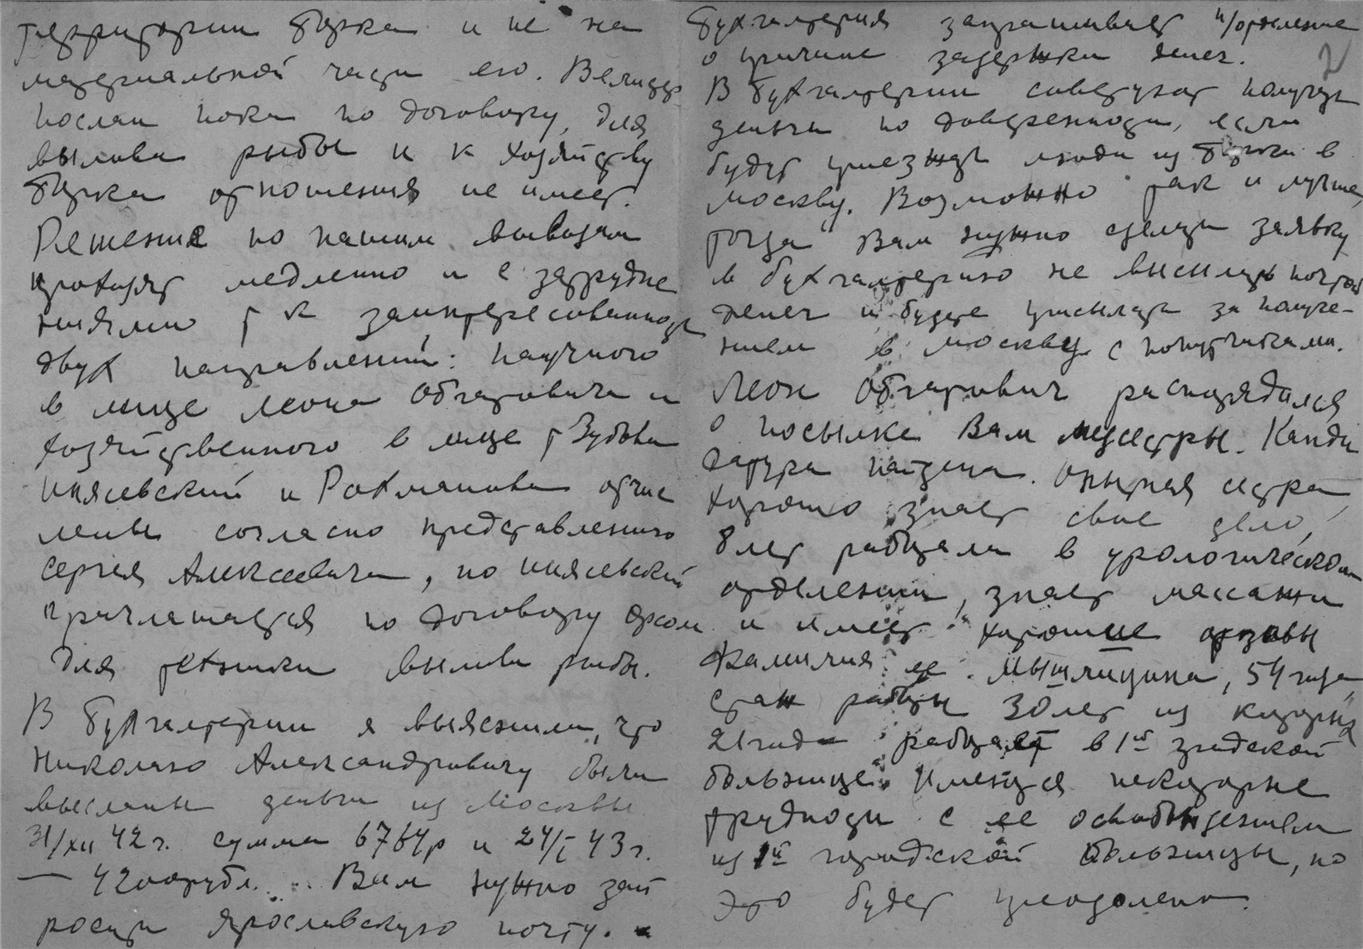 территории Борка и не на
материальной части его. Велидзе
послан пока по договору, для
вылова рыбы и к хозяйству
Борка отношения не имеет.
Решение по нашим выводам
проходят медленно и с затрудне
ниями т к заинтересованность
двух направлений: научного
в лице Леона Обгаровича и
хозяйственного в лице т Зубова
Киясевский и Рохманова отчис
лены согласно представлению
Сергея Алексеевича, но Киясевский
приглашается по договору
для техники вылова рыбы.
В бухгалтерии я выяснила, что
Николаю Александровичу были
высланы деньги из Москвы
31/XII 42 г. сумма 6764р и 24/I 43 г.
— 4200 рубл. Вам нужно зап
росить Ярославскую почту.
2
бухгалтерия запрашивает п/отделение
о причине задержки денег.
В бухгалтерии советуют получать
деньги по доверенности, если
будут приезжать люди из Борка в
Москву. Возможно так и лучше,
тогда Вам нужно сделать заявку
в бухгалтерию не высылать почтой
денег и будете присылать за получе-
нием в Москву с попутчиками.
Леон Обгарович распорядился
о посылке Вам медсестры. Канди
датура найдена. Опытная сестра,
хорошо знает свое дело,
8 лет работала в урологическом
отделении, знает массажи
и имеет хорошие отзывы
Фамилия ее Мышлицина, 54 года,
стаж работы 30 лет из которых
21 года работает в 1ой градской
больнице. Имеются некоторые
трудности с ее освобождением
из 1й городской больницы, но
это будет преодолено.